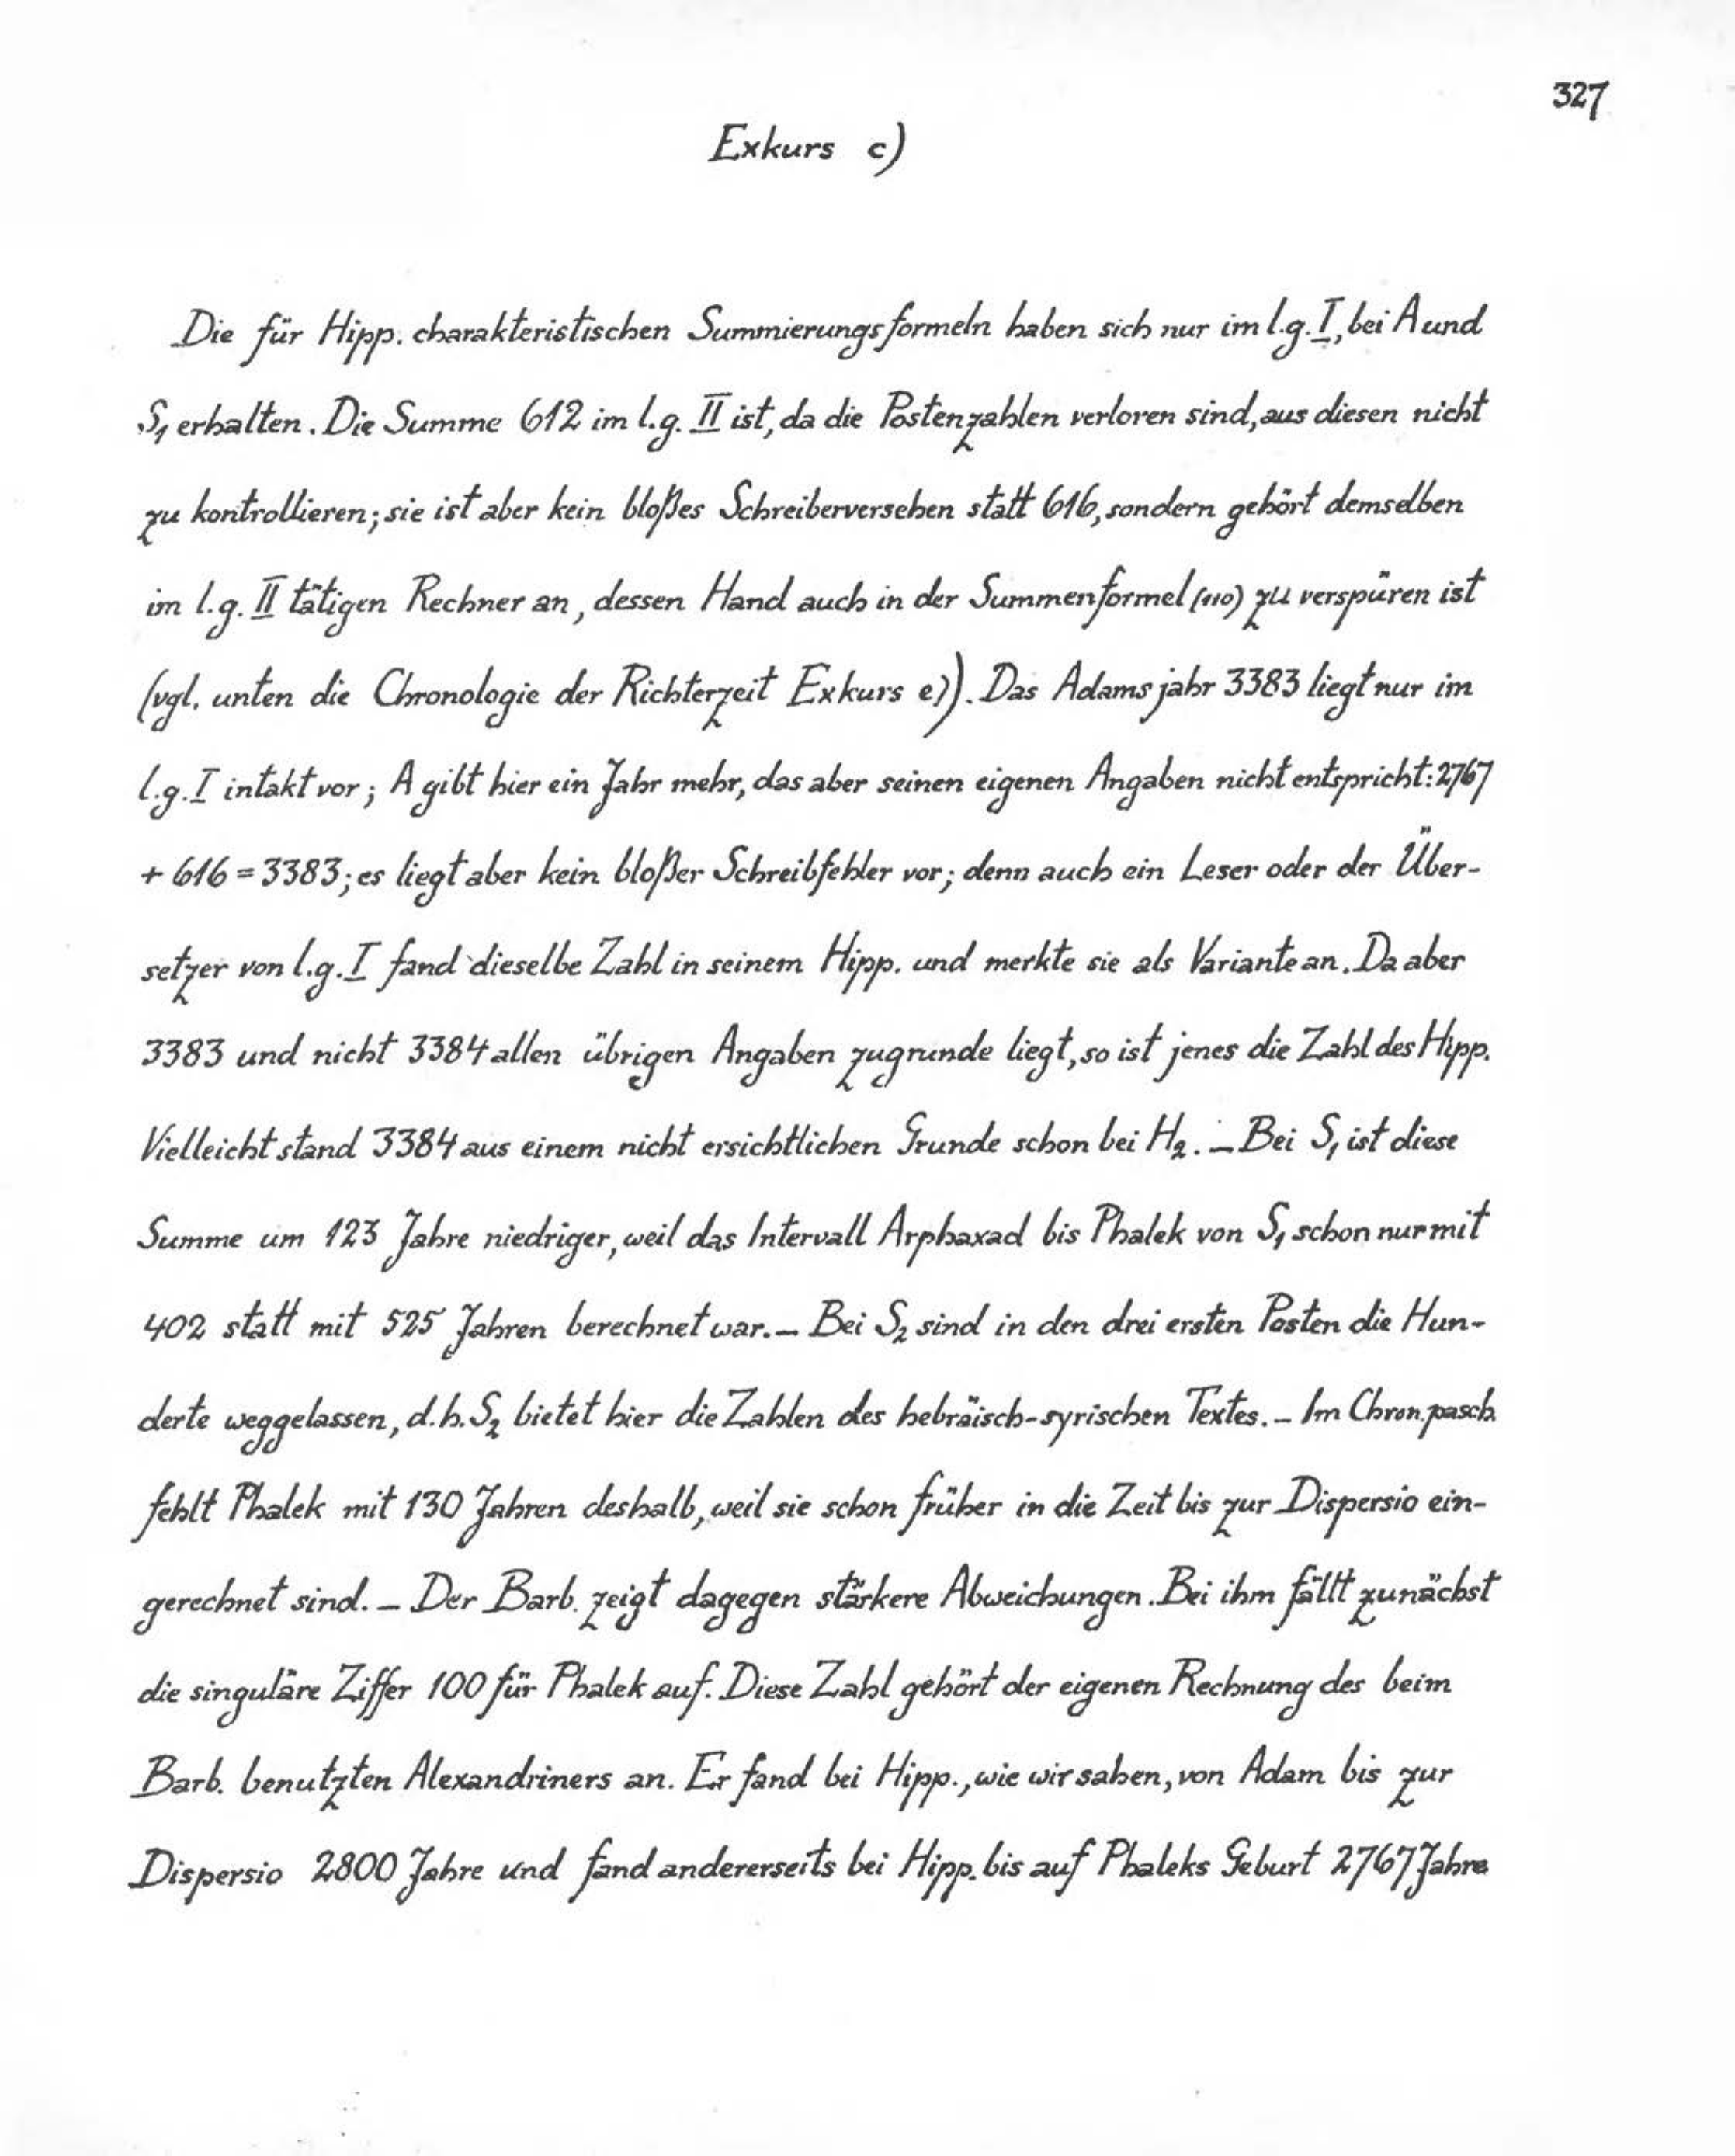 327
Exkurs c)
Die für Hipp. charakteristischen Summierungsformeln haben sich nur im l.g. I, bei A und
S₁ erhalten. Die Summe 612 im l.g. II ist, da die Postenzahlen verloren sind, aus diesen nicht
zu kontrollieren; sie ist aber kein bloßes Schreiberversehen statt 616, sondern gehört demselben
im l.g. II tätigen Rechner an, dessen Hand auch in der Summenformel (110) zu verspüren ist
(vgl. unten die Chronologie der Richterzeit Exkurs e)). Das Adamsjahr 3383 liegt nur im
l.g. I intakt vor; A gibt hier ein Jahr mehr, das aber seinen eigenen Angaben nicht entspricht: 2767
+ 616 = 3383; es liegt aber kein bloßer Schreibfehler vor; denn auch ein Leser oder der Über-
setzer von l.g. I fand dieselbe Zahl in seinem Hipp. und merkte sie als Variante an. Da aber
3383 und nicht 3384 allen übrigen Angaben zugrunde liegt, so ist jenes die Zahl des Hipp.
Vielleicht stand 3384 aus einem nicht ersichtlichen Grunde schon bei H₂. – Bei S₁ ist diese
Summe um 123 Jahre niedriger, weil das Intervall Arphaxad bis Phalek von S₁ schon nur mit
402 statt mit 525 Jahren berechnet war. – Bei S₂ sind in den drei ersten Posten die Hun-
derte weggelassen, d.h. S₂ bietet hier die Zahlen des hebräisch-syrischen Textes. – Im Chron. pasch.
fehlt Phalek mit 130 Jahren deshalb, weil sie schon früher in die Zeit bis zur Dispersio ein-
gerechnet sind. – Der Barb. zeigt dagegen stärkere Abweichungen. Bei ihm fällt zunächst
die singuläre Ziffer 100 für Phalek auf. Diese Zahl gehört der eigenen Rechnung des beim
Barb. benutzten Alexandriners an. Er fand bei Hipp., wie wir sahen, von Adam bis zur
Dispersio 2800 Jahre und fand andererseits bei Hipp. bis auf Phaleks Geburt 2767 Jahre